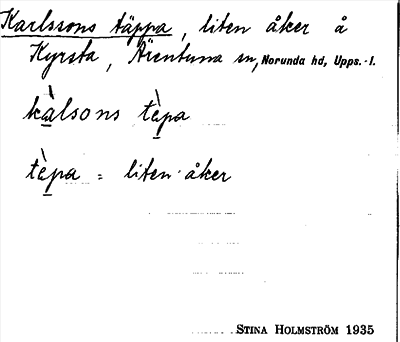 Karlssons täppa, liten åker å
Kyrsta, Ärentuna sn, Norunda hd, Upps.-l.
kàlsons tèpa
tèpa = liten åker
STINA HOLMSTRÖM 1935